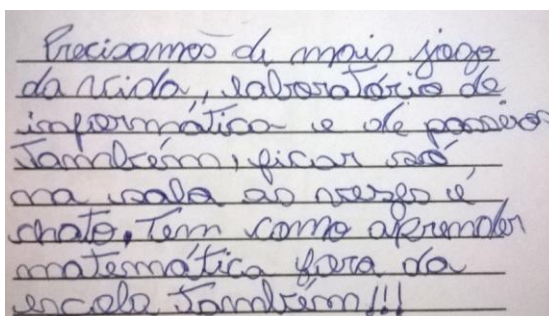 Precisamos de mais jogo
da vida, laboratório de
informática e de passeios
também, ficar só
na sala as vezes é
chato, tem como aprender
matemática fora da
escola também!!!